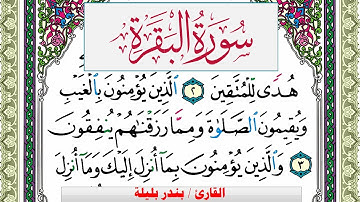 سُورَةُ البَقَرَةِ
هُدًى لِّلْمُتَّقِينَ ٢ ٱلَّذِينَ يُؤْمِنُونَ بِٱلْغَيْبِ
وَيُقِيمُونَ ٱلصَّلَوٰةَ وَمِمَّا رَزَقْنَٰهُمْ يُنفِقُونَ
٣ وَٱلَّذِينَ يُؤْمِنُونَ بِمَآ أُنزِلَ إِلَيْكَ وَمَآ أُنزِلَ
القارئ / بندر بليلة